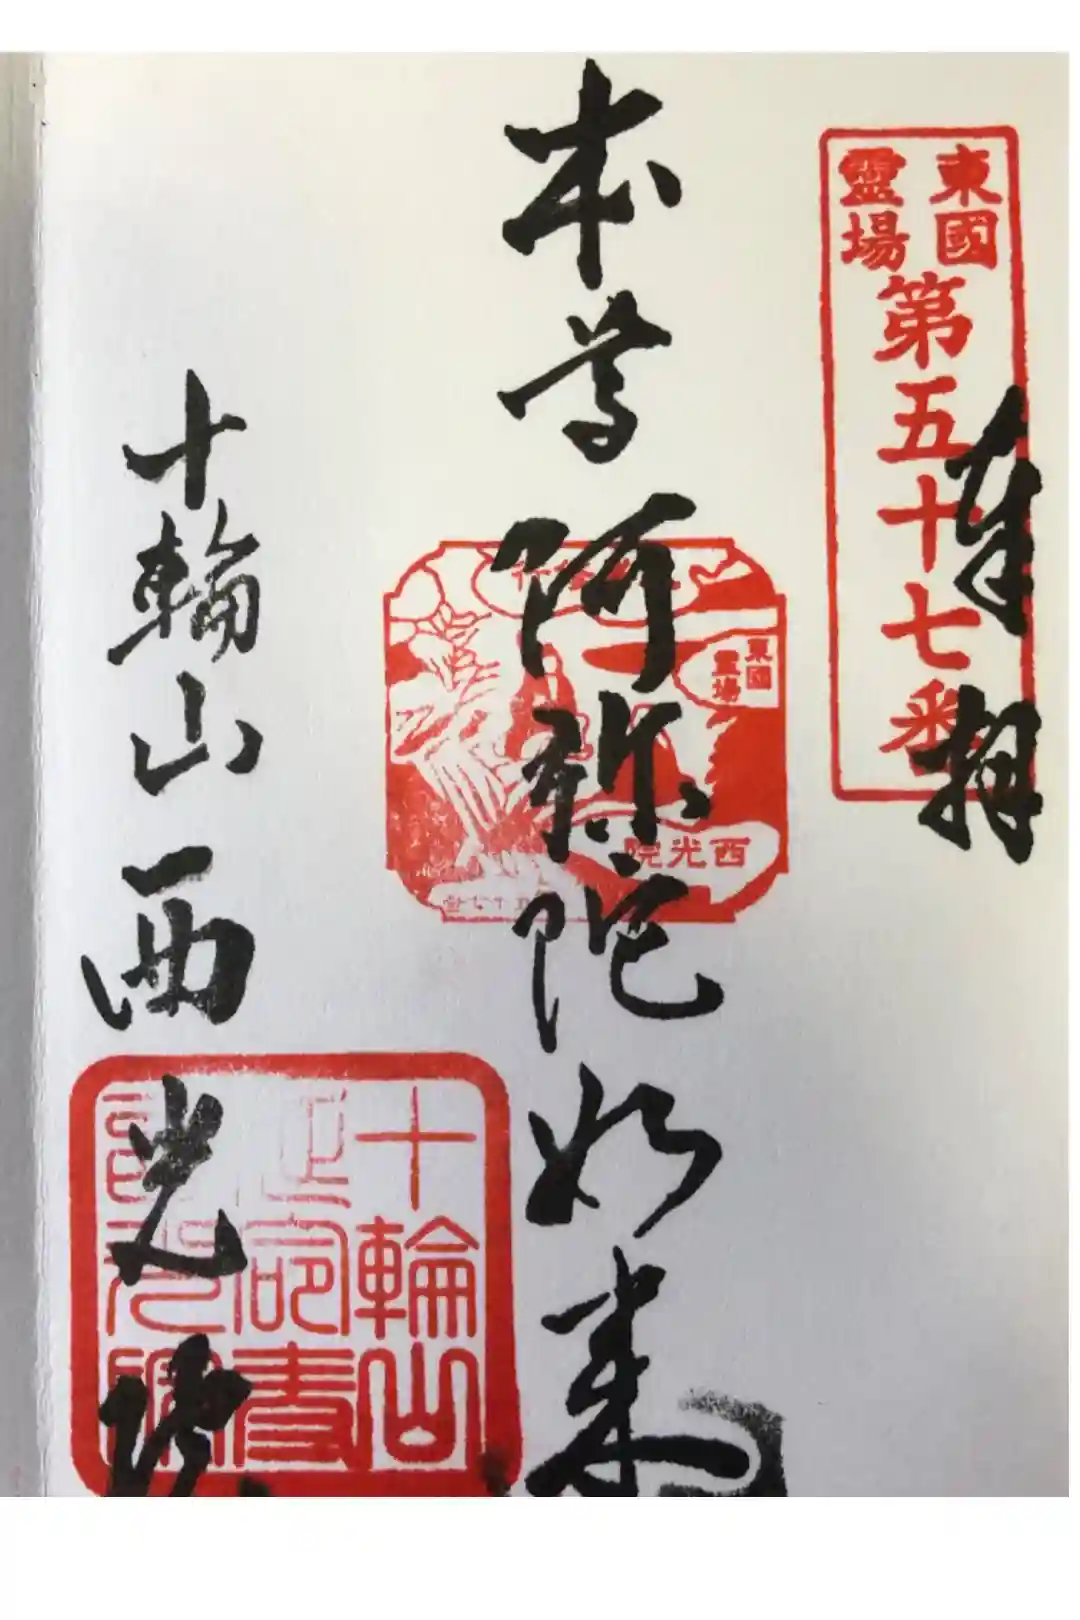 奉拝
東國
霊場
第五十七番
本尊阿弥陀如来
東國
霊場
西光院
十輪山西光院
十輪山